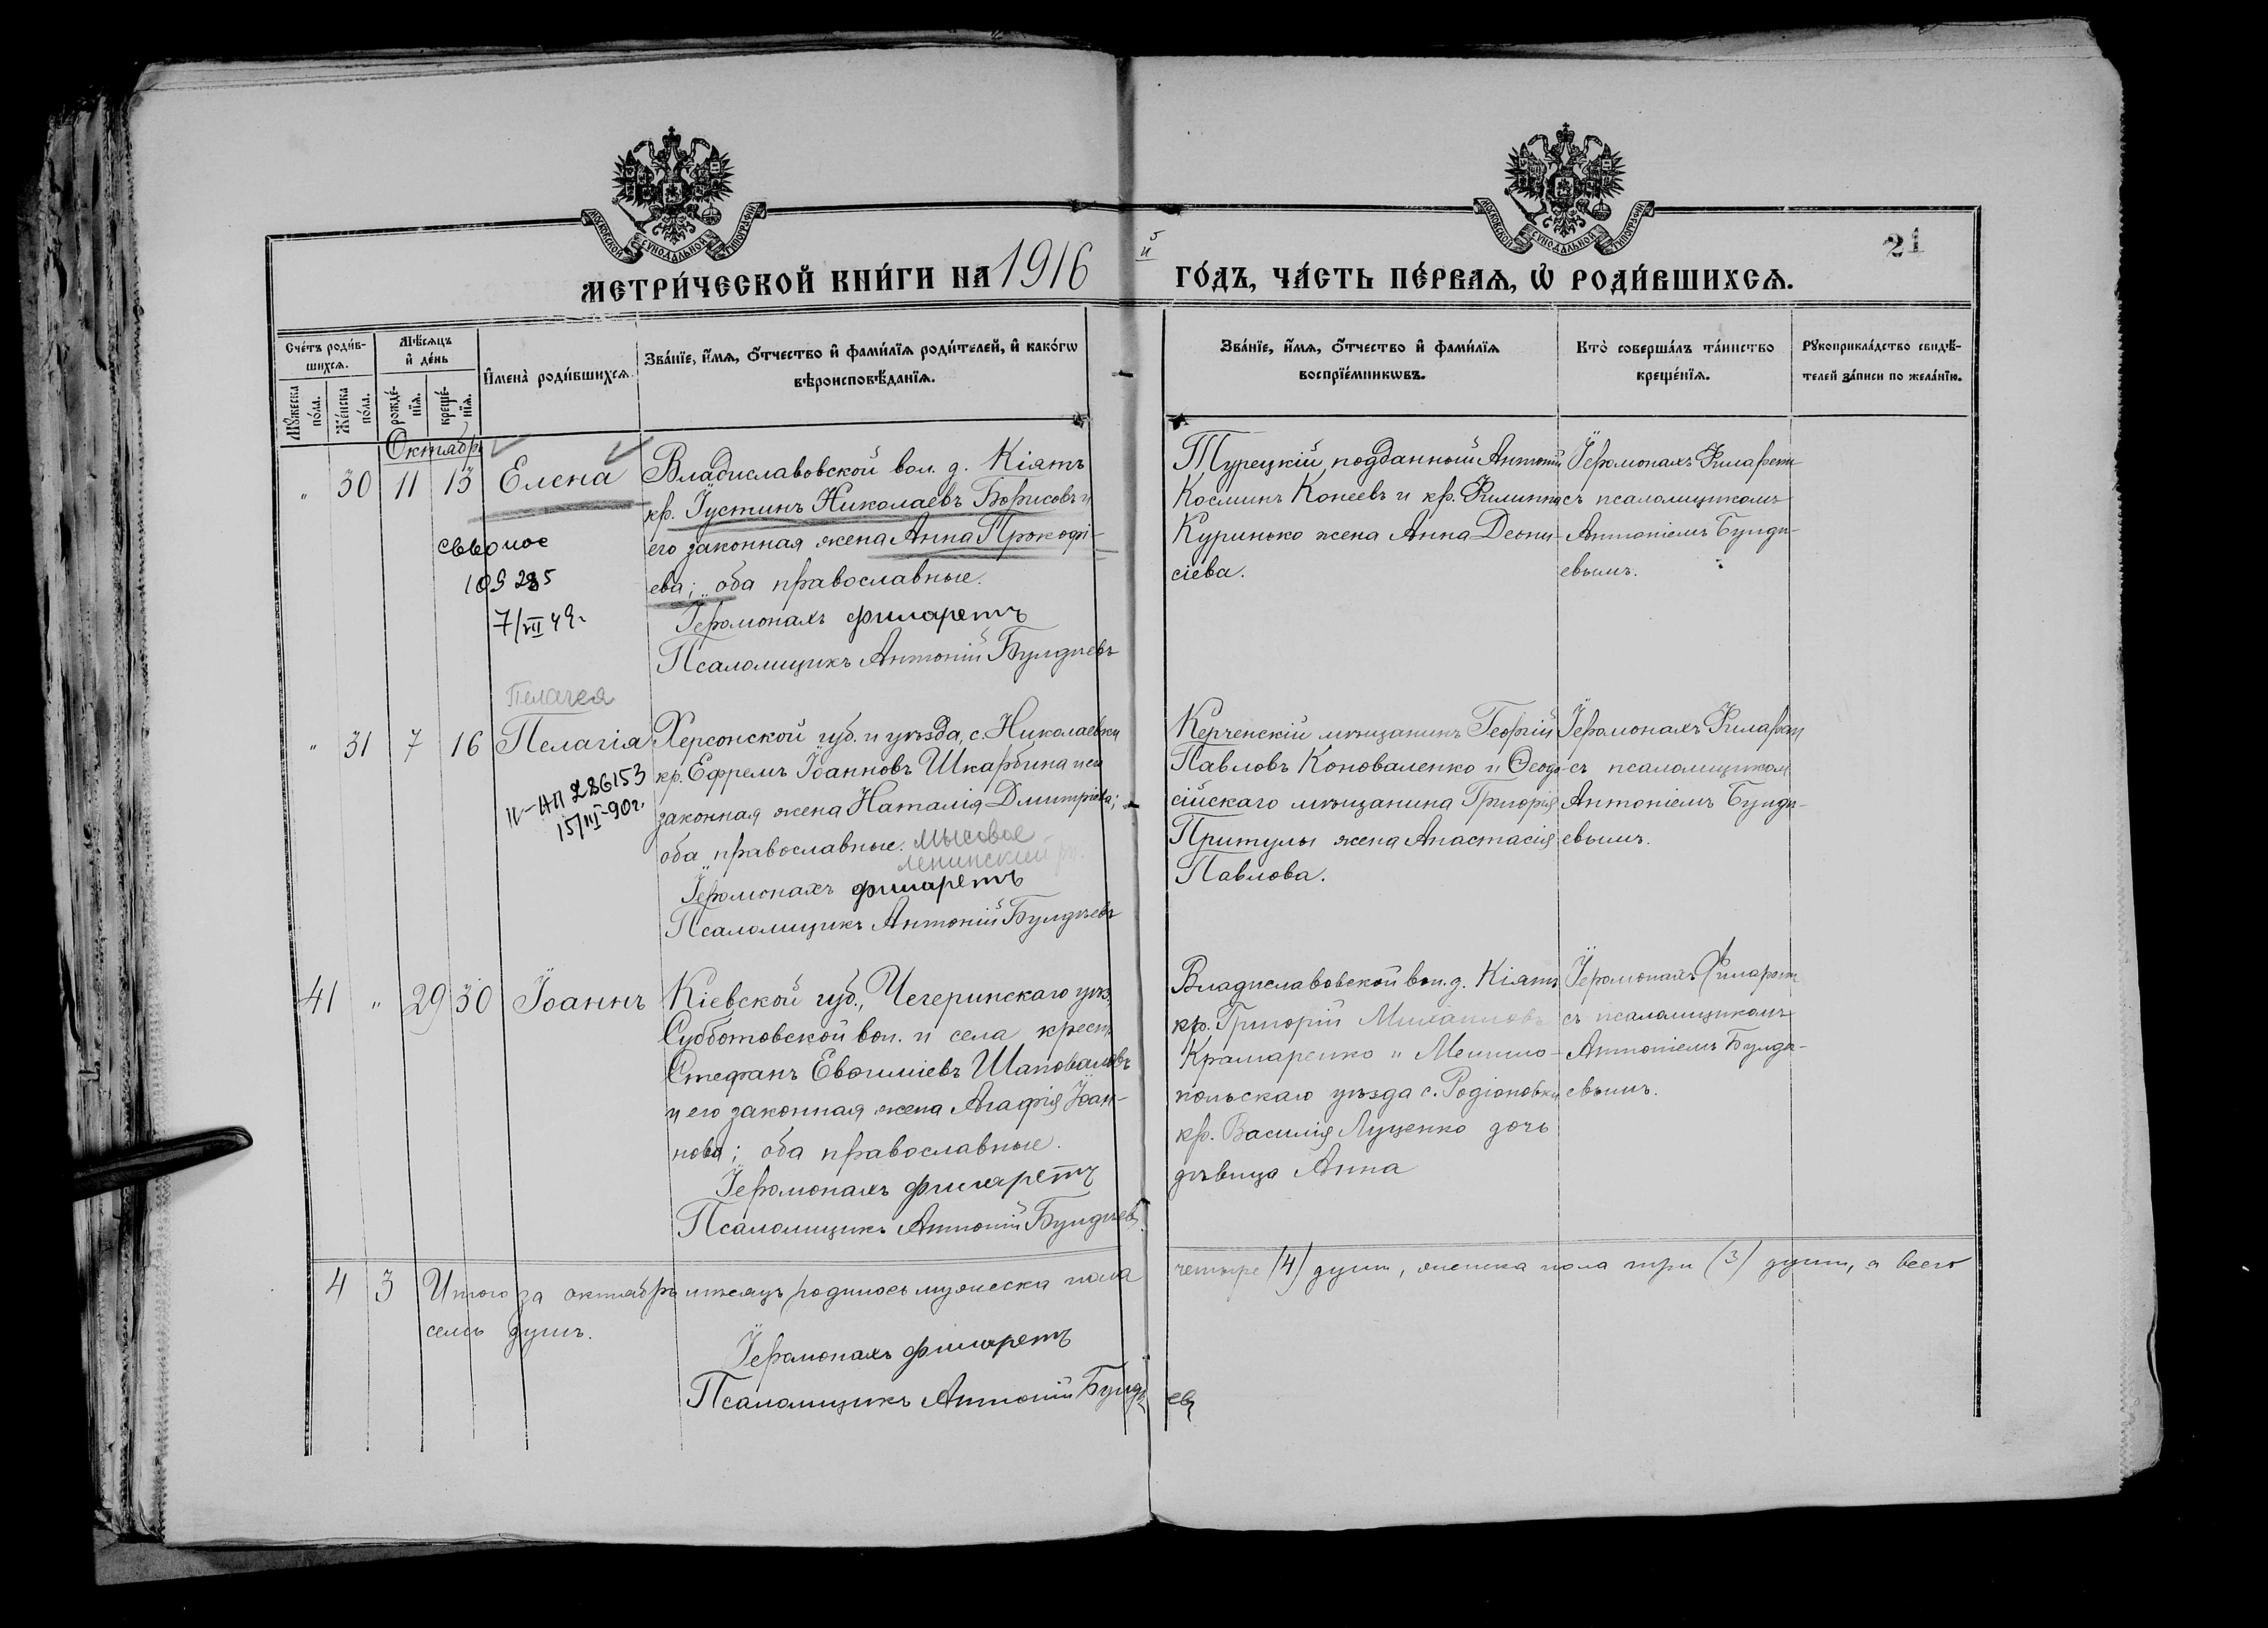 МОСКОВСКОЙ СѴНОДАЛЬНОЙ ТИПОГРАФІИ
МОСКОВСКОЙ СѴНОДАЛЬНОЙ ТИПОГРАФІИ
21
МЕТРИ́ЧЕСКОЙ КНИ́ГИ НА 1916 й ГО́ДЪ, ЧА́СТЬ ПЕ́РВАѦ, Ѡ҆ РОДИ́ВШИХСѦ.
Сче́тъ роди́в-
шихсѧ.
Мꙋ́жеска
по́ла.
Же́нска
по́ла.
Мѣ́сѧцъ
и҆ де́нь
рожде́-
нїѧ.
креще́-
нїѧ.
И҆мена̀ роди́вшихсѧ.
Зва́нїе, и҆́мѧ, ѻ҆́тчество и҆ фами́лїѧ роди́телей, и҆ како́гѡ
вѣроисповѣ́данїѧ.
Зва́нїе, и҆́мѧ, ѻ҆́тчество и҆ фами́лїѧ
воспрїе́мникѡвъ.
Кто̀ соверша́лъ та́инство
креще́нїѧ.
Рꙋкоприкла́дство свидѣ́-
телей за́писи по жела́нїю.
Октябрь
" 30 11 13 Елена
109285
7/VII 49г
Владиславовской вол. д. Кіятъ
кр. Іустинъ Николаевъ Борисовъ и
его законная жена Анна Прокофі-
ева; оба православные.
Іеромонахъ Филаретъ
Псаломщикъ Антоній Булдѣевъ
Турецкій подданный Антоній
Косминъ Конеевъ и кр. Филиппа
Куринько жена Анна Деони-
сіева.
Іеромонахъ Филаретъ
съ псаломщикомъ
Антоніемъ Булдѣ-
евымъ.
Пелагея
" 31 7 16 Пелагія
II-АП 286153
15/III-90г.
Херсонской губ. и уѣзда, с. Николаевки
кр. Ефремъ Іоанновъ Шкарбина и его
законная жена Наталія Димитріева;
оба православные. Мысовое
Ленинский рн.
Іеромонахъ Филаретъ
Псаломщикъ Антоній Булдѣевъ
Керченскій мѣщанинъ Георгій
Павловъ Коноваленко и Ѳеодо-
сійскаго мѣщанина Григорія
Притулы жена Анастасія
Павлова.
Іеромонахъ Филарет
съ псаломщиком
Антоніемъ Булдѣ-
евымъ.
41 " 29 30 Іоаннъ
Кіевской губ., Чегеринскаго уѣз.
Субботовской вол. и села крест.
Стефанъ Евѳиміевъ Шаповаловъ
и его законная жена Агафія Іоан-
нова; оба православные.
Іеромонахъ Филаретъ
Псаломщикъ Антоній Булдѣевъ
Владиславовской вол. д. Кіятъ
кр. Григорій Михаиловъ
Крамаренко и Мелито-
польскаго уѣзда с. Родіоновки
кр. Василія Луценко дочь
дѣвица Анна
Іеромонахъ Филаретъ
съ псаломщикомъ
Антоніемъ Булдѣ-
евымъ.
4 3 Итого за октябрь мѣсяцъ родилось мужеска пола четыре (4) душъ, женска пола три (3) души, а всего
семь душъ.
Іеромонахъ Филаретъ
Псаломщикъ Антоній Булдѣевъ